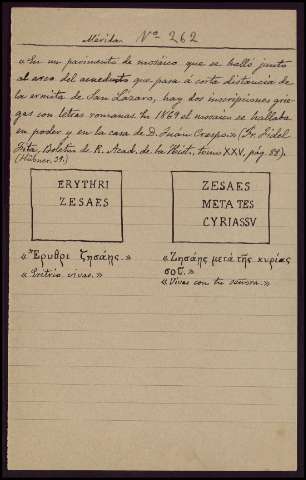 Mérida. Nº 262
«En un pavimento de mosáico que se halló junto
al arco del acueducto que pasa á corta distancia de
la ermita de San Lázaro, hay dos inscripciones grie-
gas con letras romanas. En 1869 el mosáico se hallaba
en poder y en la casa de D. Juan Crespo» (Fr. Fidel
Fita, Boletín de R. Acad. de la Hist., tomo XXV, pág. 88).
(Hübner. 39.)
ERYTHRI
ZESAES
ZESAES
META TES
CYRIASSV
«Ἔρυθρι ζησάης.»
vivas.»
«Ζησάης μετά τῆς κυρίας
σοῦ.»
«Vivas con tu señora.»